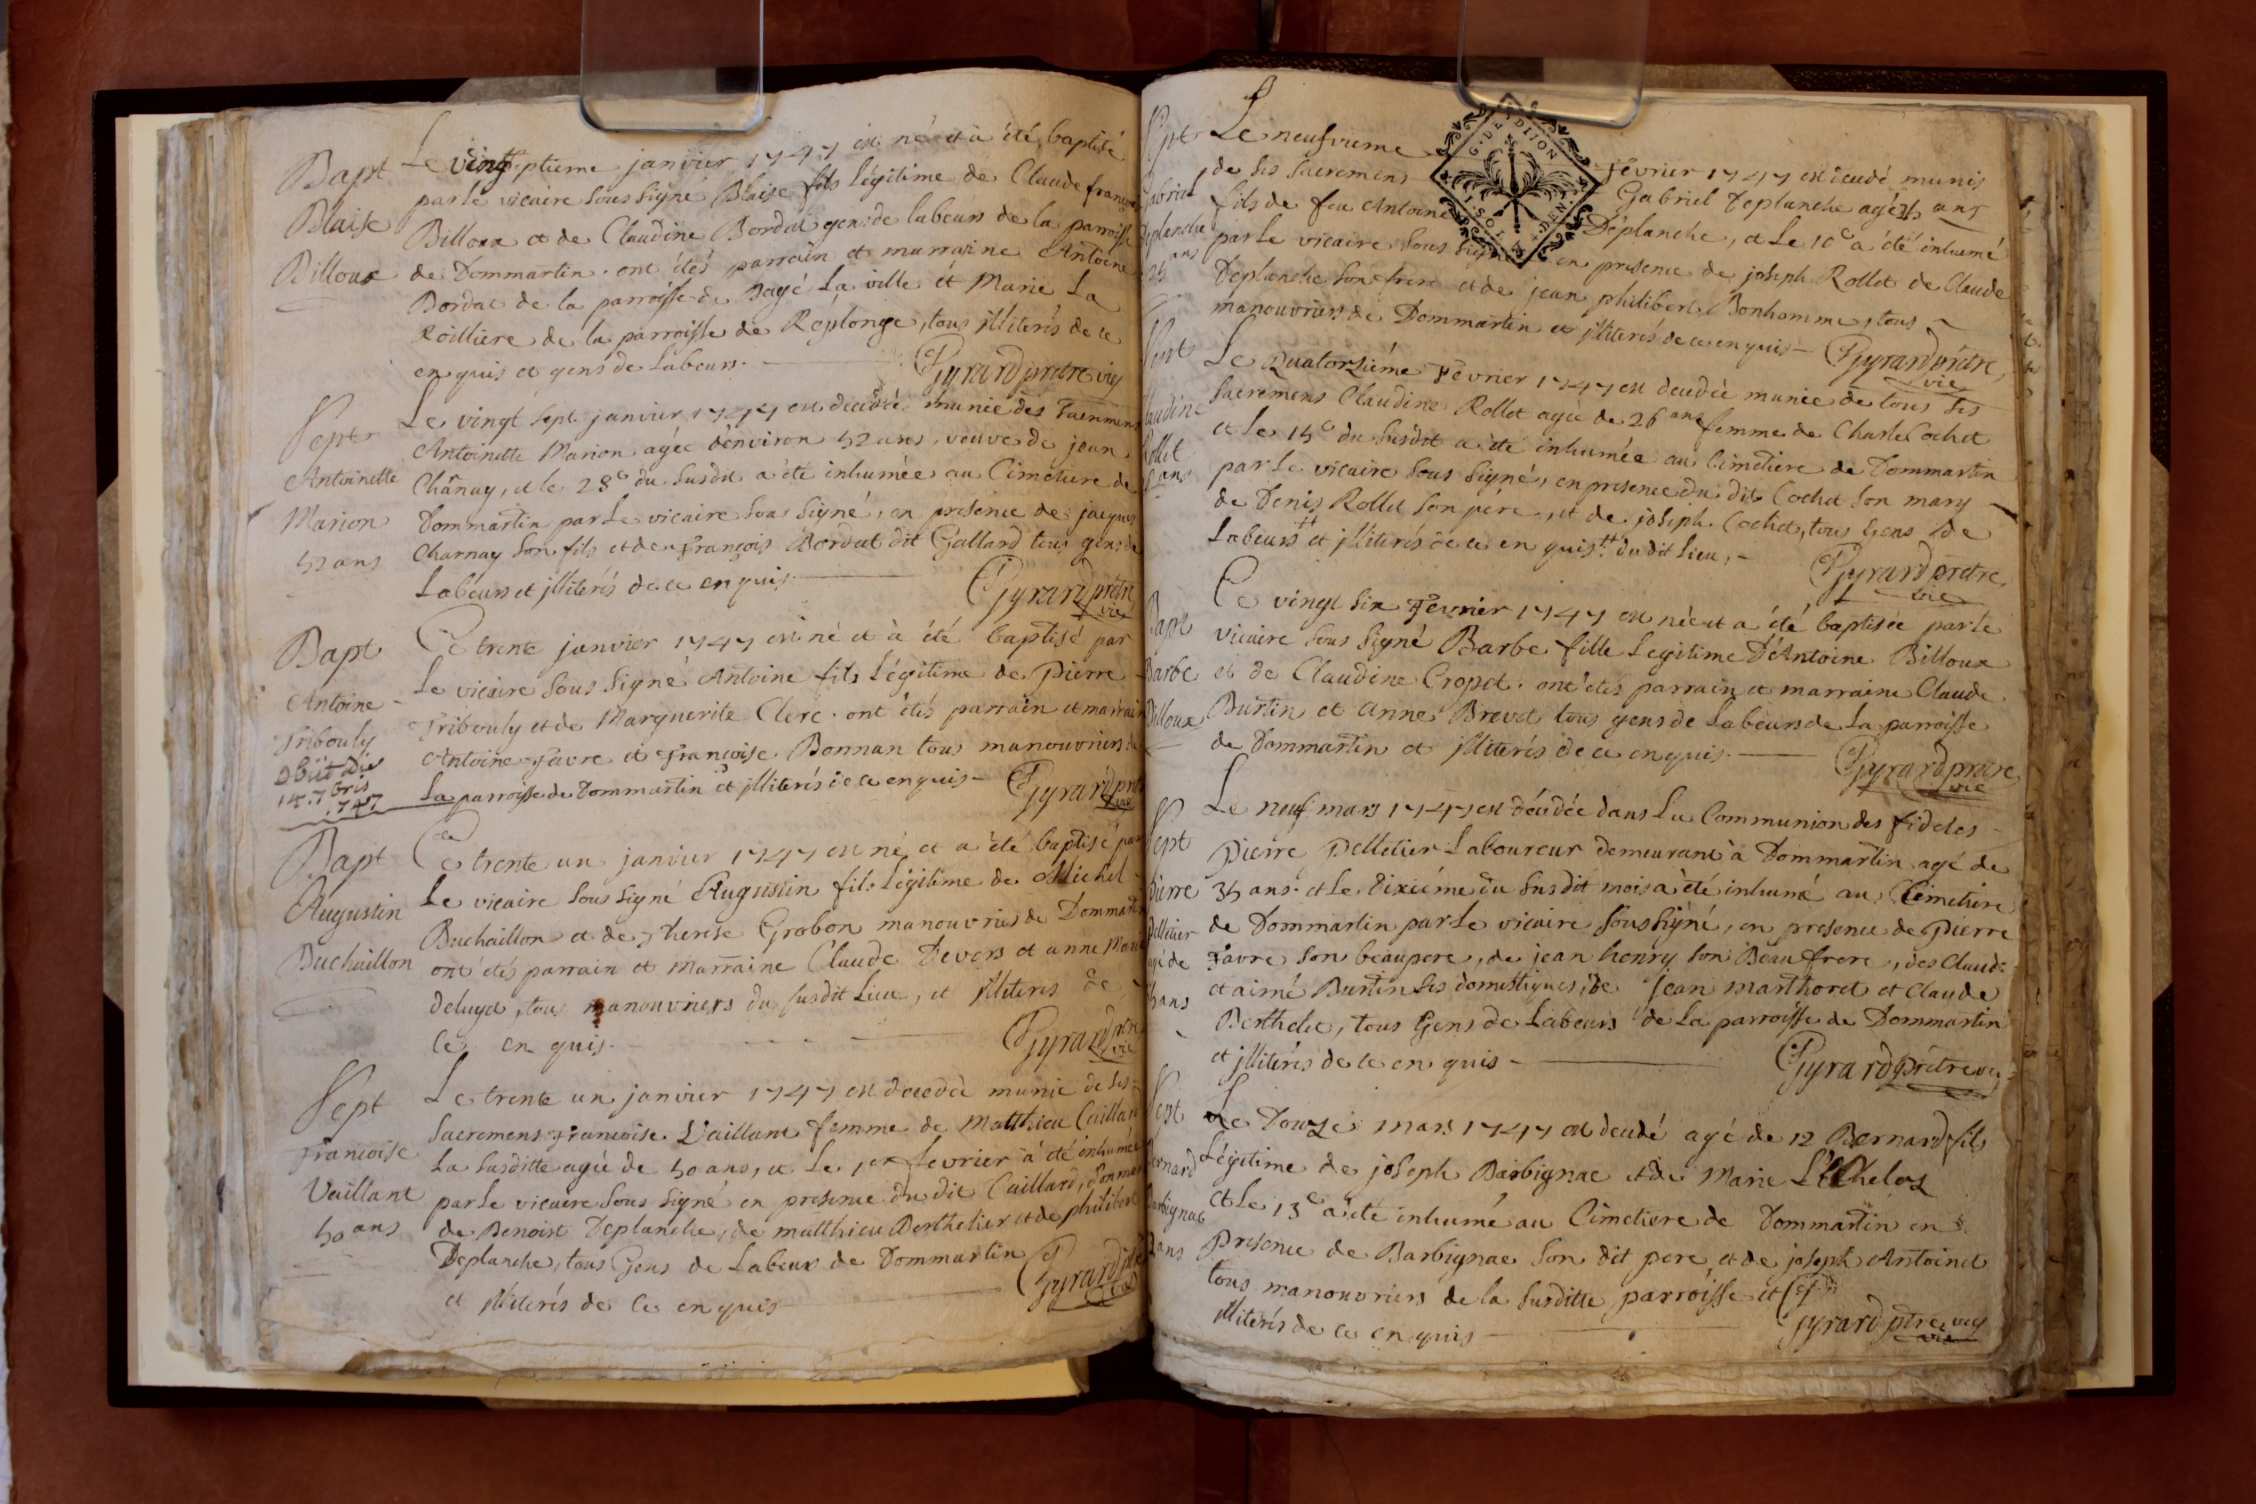 Bapt
Blaise
Billoux
Le vingt septieme janvier 1747 est né et à été baptisé
par le vicaire sous signé Blaise fils légitime de Claude françois
Billoux et de Claudine Bordat gens de labeurs de la parroisse
de Dommartin. ont étés parrain et marraine Antoine
Bordat de la parroisse de Bagé la ville et Marie La
Roilliere de la parroisse de Replonge, tous illiterés de ce
enquis et gens de labeurs.
Gyrard pretre vic
Sept
Antoinette
Marion
52 ans
Le vingt sept janvier 1747 est decedée munie des sacremens
Antoinette Marion agée d'environ 52 ans, veuve de jean
Charnay, et le 28e du susdit a été inhumée au Cimetiere de
Dommartin par le vicaire sous signé, en présence de jacques
Charnay son fils et de François Bordat dit Gallard tous gens de
labeurs et illiterés de ce enquis
Gyrard pretre
vic
Bapt
Antoine
Tribouly
obiit die
14. 7bris
1747
Ce trente janvier 1747 est né et à été baptisé par
Le vicaire sous signé Antoine fils Légitime de Pierre
Tribouly et de Marguerite Clerc. ont étés parrain et marraine
Antoine Favre et Françoise Bonnan tous manouvriers de
La parroisse de Dommartin et illiterés de ce enquis
Gyrard pretre
vic
Bapt
Augustin
Buchaillon
Ce trente un janvier 1747 est né et a été baptisé par
Le vicaire sous signé Augustin fils Légitime de Michel
Buchaillon et de Therese Grobon manouvriers de Dommartin
ont étés parrain et marraine Claude Devers et anne
deluya, tous manouvriers du susdit Lieu, et illiterés de
ce en quis.
Gyrard ptre
vic
Sept
Francoise
Vaillant
50 ans
Le trente un janvier 1747 est decedée munie de ses
sacremens Francoise Vaillant femme de Matthieu Caillard
La susditte agée de 50 ans, et Le 1er fevrier à été inhumée
par le vicaire sous signé en presence du dit Caillard,
de Benoist Deplanche, de matthieu Berthelier et de philibert
Deplanche, tous Gens de Labeur de Dommartin
et illiterés de ce en quis
Gyrard ptre
vic
Sept
Gabriel
Deplanche
25 ans
G. DE DIJON
1. SOL 4. DEN
Le neufvieme Février 1747 est decedé munis
de ses sacremens Gabriel Deplanche agé 25 ans
fils de feu Antoine Déplanche, et Le 10e a été inhumé
par le vicaire sous signé en presence de joseph Rollet de Claude
Deplanche son frere et de jean philibert Bonhomme, tous
manouvriers de Dommartin et illiterés de ce enquis
Gyrard pretre
vic
Sept
Claudine
Rollet
ans
Le Quatorzième Février 1747 est decedée munie de tous ses
sacremens Claudine Rollet agée de 26 ans femme de Charle Cochet
et le 15e du susdit a été inhumée au Cimetiere de Dommartin
par Le vicaire sous signé, en presence du dit Cochet son mary
de Denis Rollet son pere, et de joseph Cochet, tous Gens de
labeurs et illiterés de ce en quis du dit Lieu,
Gyrard pretre
vic
Bapt
Barbe
Billoux
Ce vingt six Fevrier 1747 est née et a été baptisée par le
vicaire sous signé Barbe fille Legitime D'Antoine Billoux
et de Claudine Cropet. ont étés parrain et marraine Claude
Burtin et anne Brevet tous gens de Labeurs de La parroisse
de Dommartin et illiterés de ce enquis
Gyrard pretre
vic
Sept
Pierre
Pelletier
agé de
35 ans
Le neuf mars 1747 est décédée dans La Communion des fideles
Pierre Pelletier Laboureur demeurant à Dommartin agé de
35 ans. et Le Dixiéme du susdit mois a été inhumé au Cimetiere
de Dommartin par Le vicaire sous signé, en presence de Pierre
Favre son beaupere, de jean henry son Beau frere, des Claude
et aimé Burtin ses domestiques, de Jean marthoret et Claude
Berthelie, tous Gens de Labeurs de La parroisse de Dommartin
et illiterés de ce en quis
Gyrard prêtre vic
Sept
Bernard
Barbignac
12 ans
Le Douze mars 1747 est decedé agé de 12 Bernard fils
Légitime de joseph Barbignac et de Marie
et Le 13e a été inhumé au Cimetiere de Dommartin en
Presence de Barbignac son dit pere, et de joseph Antoinet
tous manouvriers de la susditte parroisse et
illiterés de ce en quis
Gyrard ptre vic